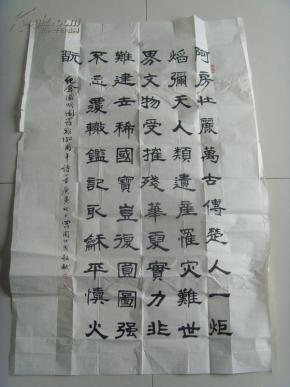 阿房壯麗萬古傳楚人一炬
焰彌天人類遺產罹灾難世
界文物受摧殘華夏實力非
難建世稀國寶豈復圓圖强
不忘覆轍鑑記取龢平慎火
翫
纪念圆明园罹难150周年诗一首庚寅